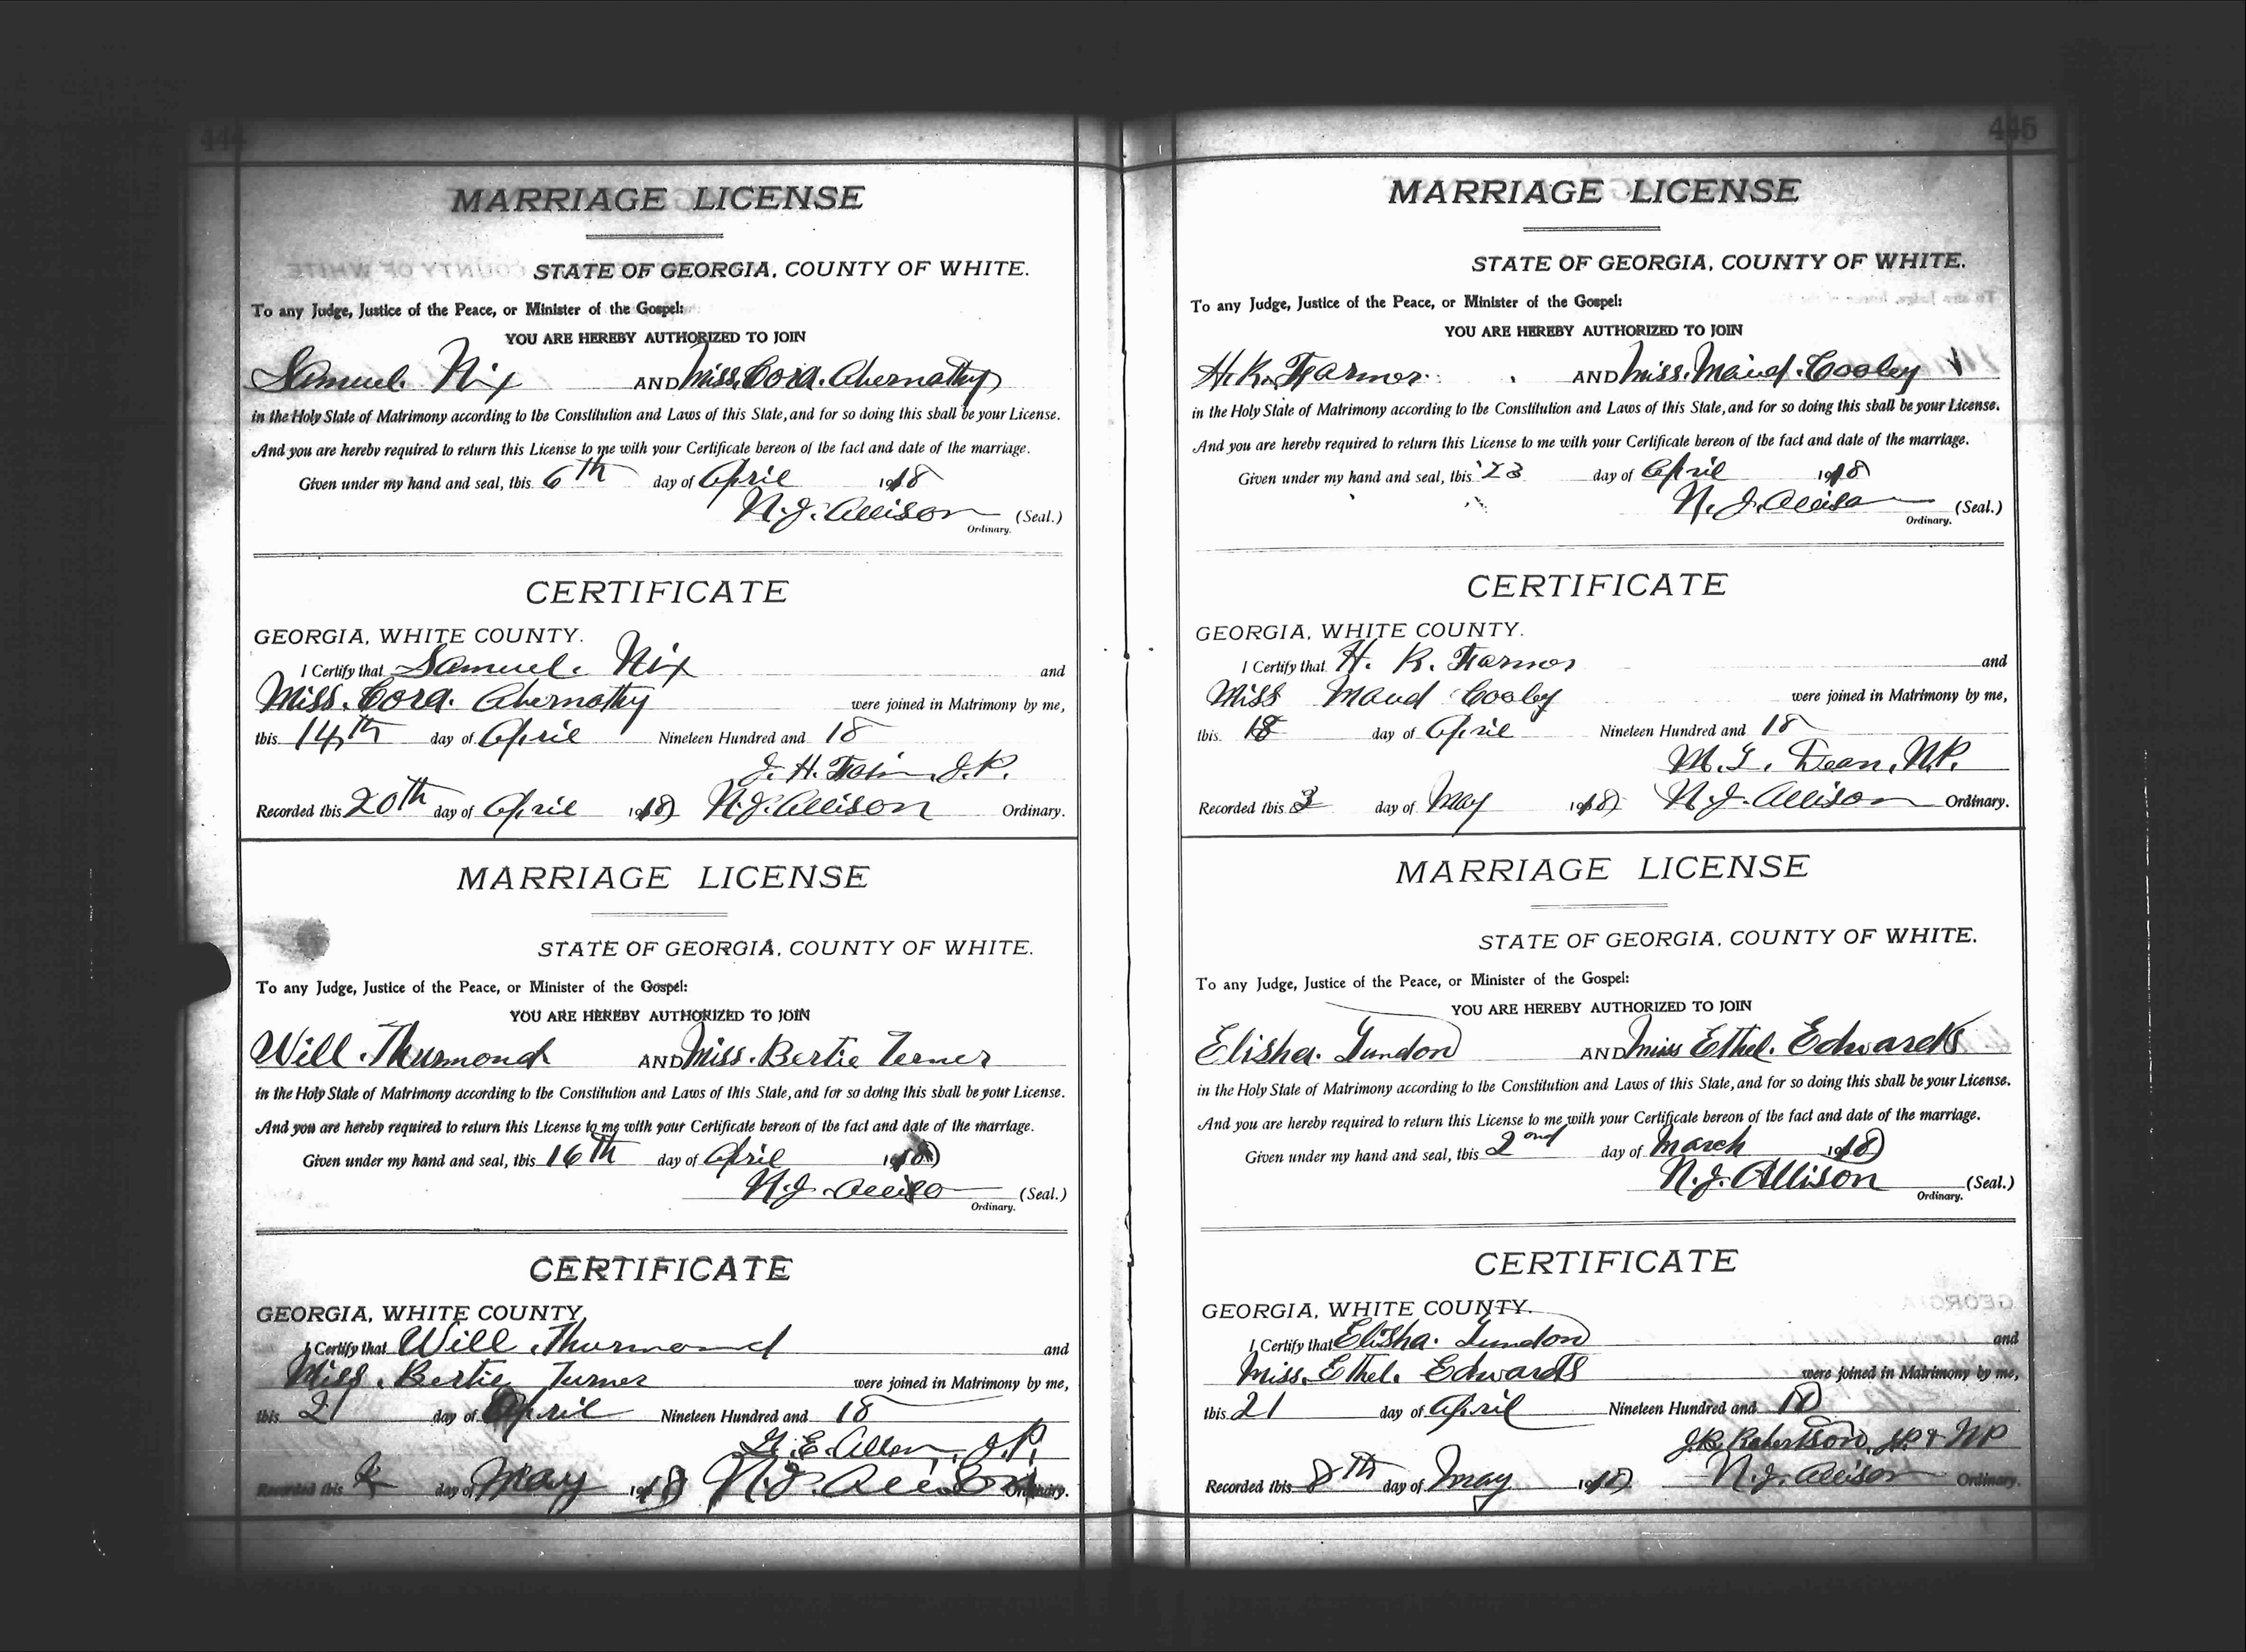 444
MARRIAGE LICENSE
STATE OF GEORGIA, COUNTY OF WHITE.
To any Judge, Justice of the Peace, or Minister of the Gospel:
YOU ARE HEREBY AUTHORIZED TO JOIN
Samuel. Nix AND Miss. Cora. Abernathy
in the Holy State of Matrimony according to the Constitution and Laws of this State, and for so doing this shall be your License.
And you are hereby required to return this License to me with your Certificate hereon of the fact and date of the marriage.
Given under my hand and seal, this 6th day of April 1918
N. J. Allison (Seal.)
Ordinary.
CERTIFICATE
GEORGIA, WHITE COUNTY.
I Certify that Samuel. Nix and
Miss. Cora. Abernathy were joined in Matrimony by me,
this 14th day of April Nineteen Hundred and 18
J. H. J.P.
Recorded this 20th day of April 1918 N. J. Allison Ordinary.
MARRIAGE LICENSE
STATE OF GEORGIA, COUNTY OF WHITE.
To any Judge, Justice of the Peace, or Minister of the Gospel:
YOU ARE HEREBY AUTHORIZED TO JOIN
Will. Thurmond AND Miss. Bertie Terner
in the Holy State of Matrimony according to the Constitution and Laws of this State, and for so doing this shall be your License.
And you are hereby required to return this License to me with your Certificate hereon of the fact and date of the marriage.
Given under my hand and seal, this 16th day of April 1918
N. J. Alliso (Seal.)
Ordinary.
CERTIFICATE
GEORGIA, WHITE COUNTY.
I Certify that Will. Thurmond and
Miss. Bertie Turner were joined in Matrimony by me,
this 21 day of April Nineteen Hundred and 18
E. Allen, J.P.
Recorded this day of May 1918 N. J. Allison Ordinary.
445
MARRIAGE LICENSE
STATE OF GEORGIA, COUNTY OF WHITE.
To any Judge, Justice of the Peace, or Minister of the Gospel:
YOU ARE HEREBY AUTHORIZED TO JOIN
H. K. Farmer. AND Miss. Maud. Cooley
in the Holy State of Matrimony according to the Constitution and Laws of this State, and for so doing this shall be your License.
And you are hereby required to return this License to me with your Certificate hereon of the fact and date of the marriage.
Given under my hand and seal, this 23 day of April 1918
N. J. Alliso (Seal.)
Ordinary.
CERTIFICATE
GEORGIA, WHITE COUNTY.
I Certify that H. K. Farmer and
Miss Maud Cooley were joined in Matrimony by me,
this 18 day of April Nineteen Hundred and 18
M. G. Dean, N.P.
Recorded this 3 day of May 1918 N. J. Allison Ordinary.
MARRIAGE LICENSE
STATE OF GEORGIA, COUNTY OF WHITE.
To any Judge, Justice of the Peace, or Minister of the Gospel:
YOU ARE HEREBY AUTHORIZED TO JOIN
Elisha. Lundon AND Miss Ethel. Edwards
in the Holy State of Matrimony according to the Constitution and Laws of this State, and for so doing this shall be your License.
And you are hereby required to return this License to me with your Certificate hereon of the fact and date of the marriage.
Given under my hand and seal, this 2nd day of March 1918
N. J. Allison (Seal.)
Ordinary.
CERTIFICATE
GEORGIA, WHITE COUNTY.
I Certify that Elisha. Lundon and
Miss. Ethel. Edwards were joined in Matrimony by me,
this 21 day of April Nineteen Hundred and 18
J. R. Robertson, JP & NP
Recorded this 8th day of May 1918 N. J. Allison Ordinary.